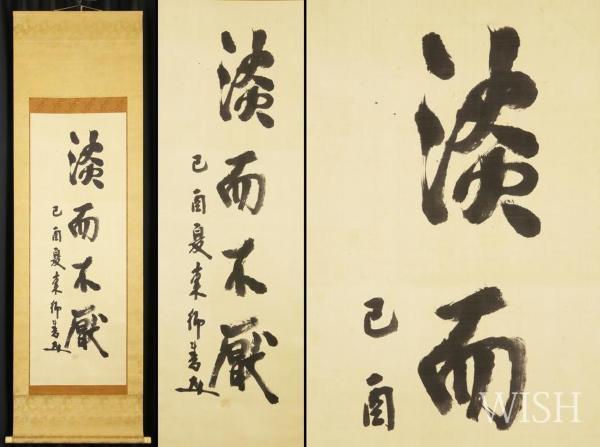 淡而不厭
己酉夏東御書
淡而不厭
己酉夏東御書
淡而
己酉
WISH